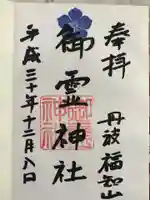 奉拝
丹波福知山
御霊神社
平成三十年十二月八日